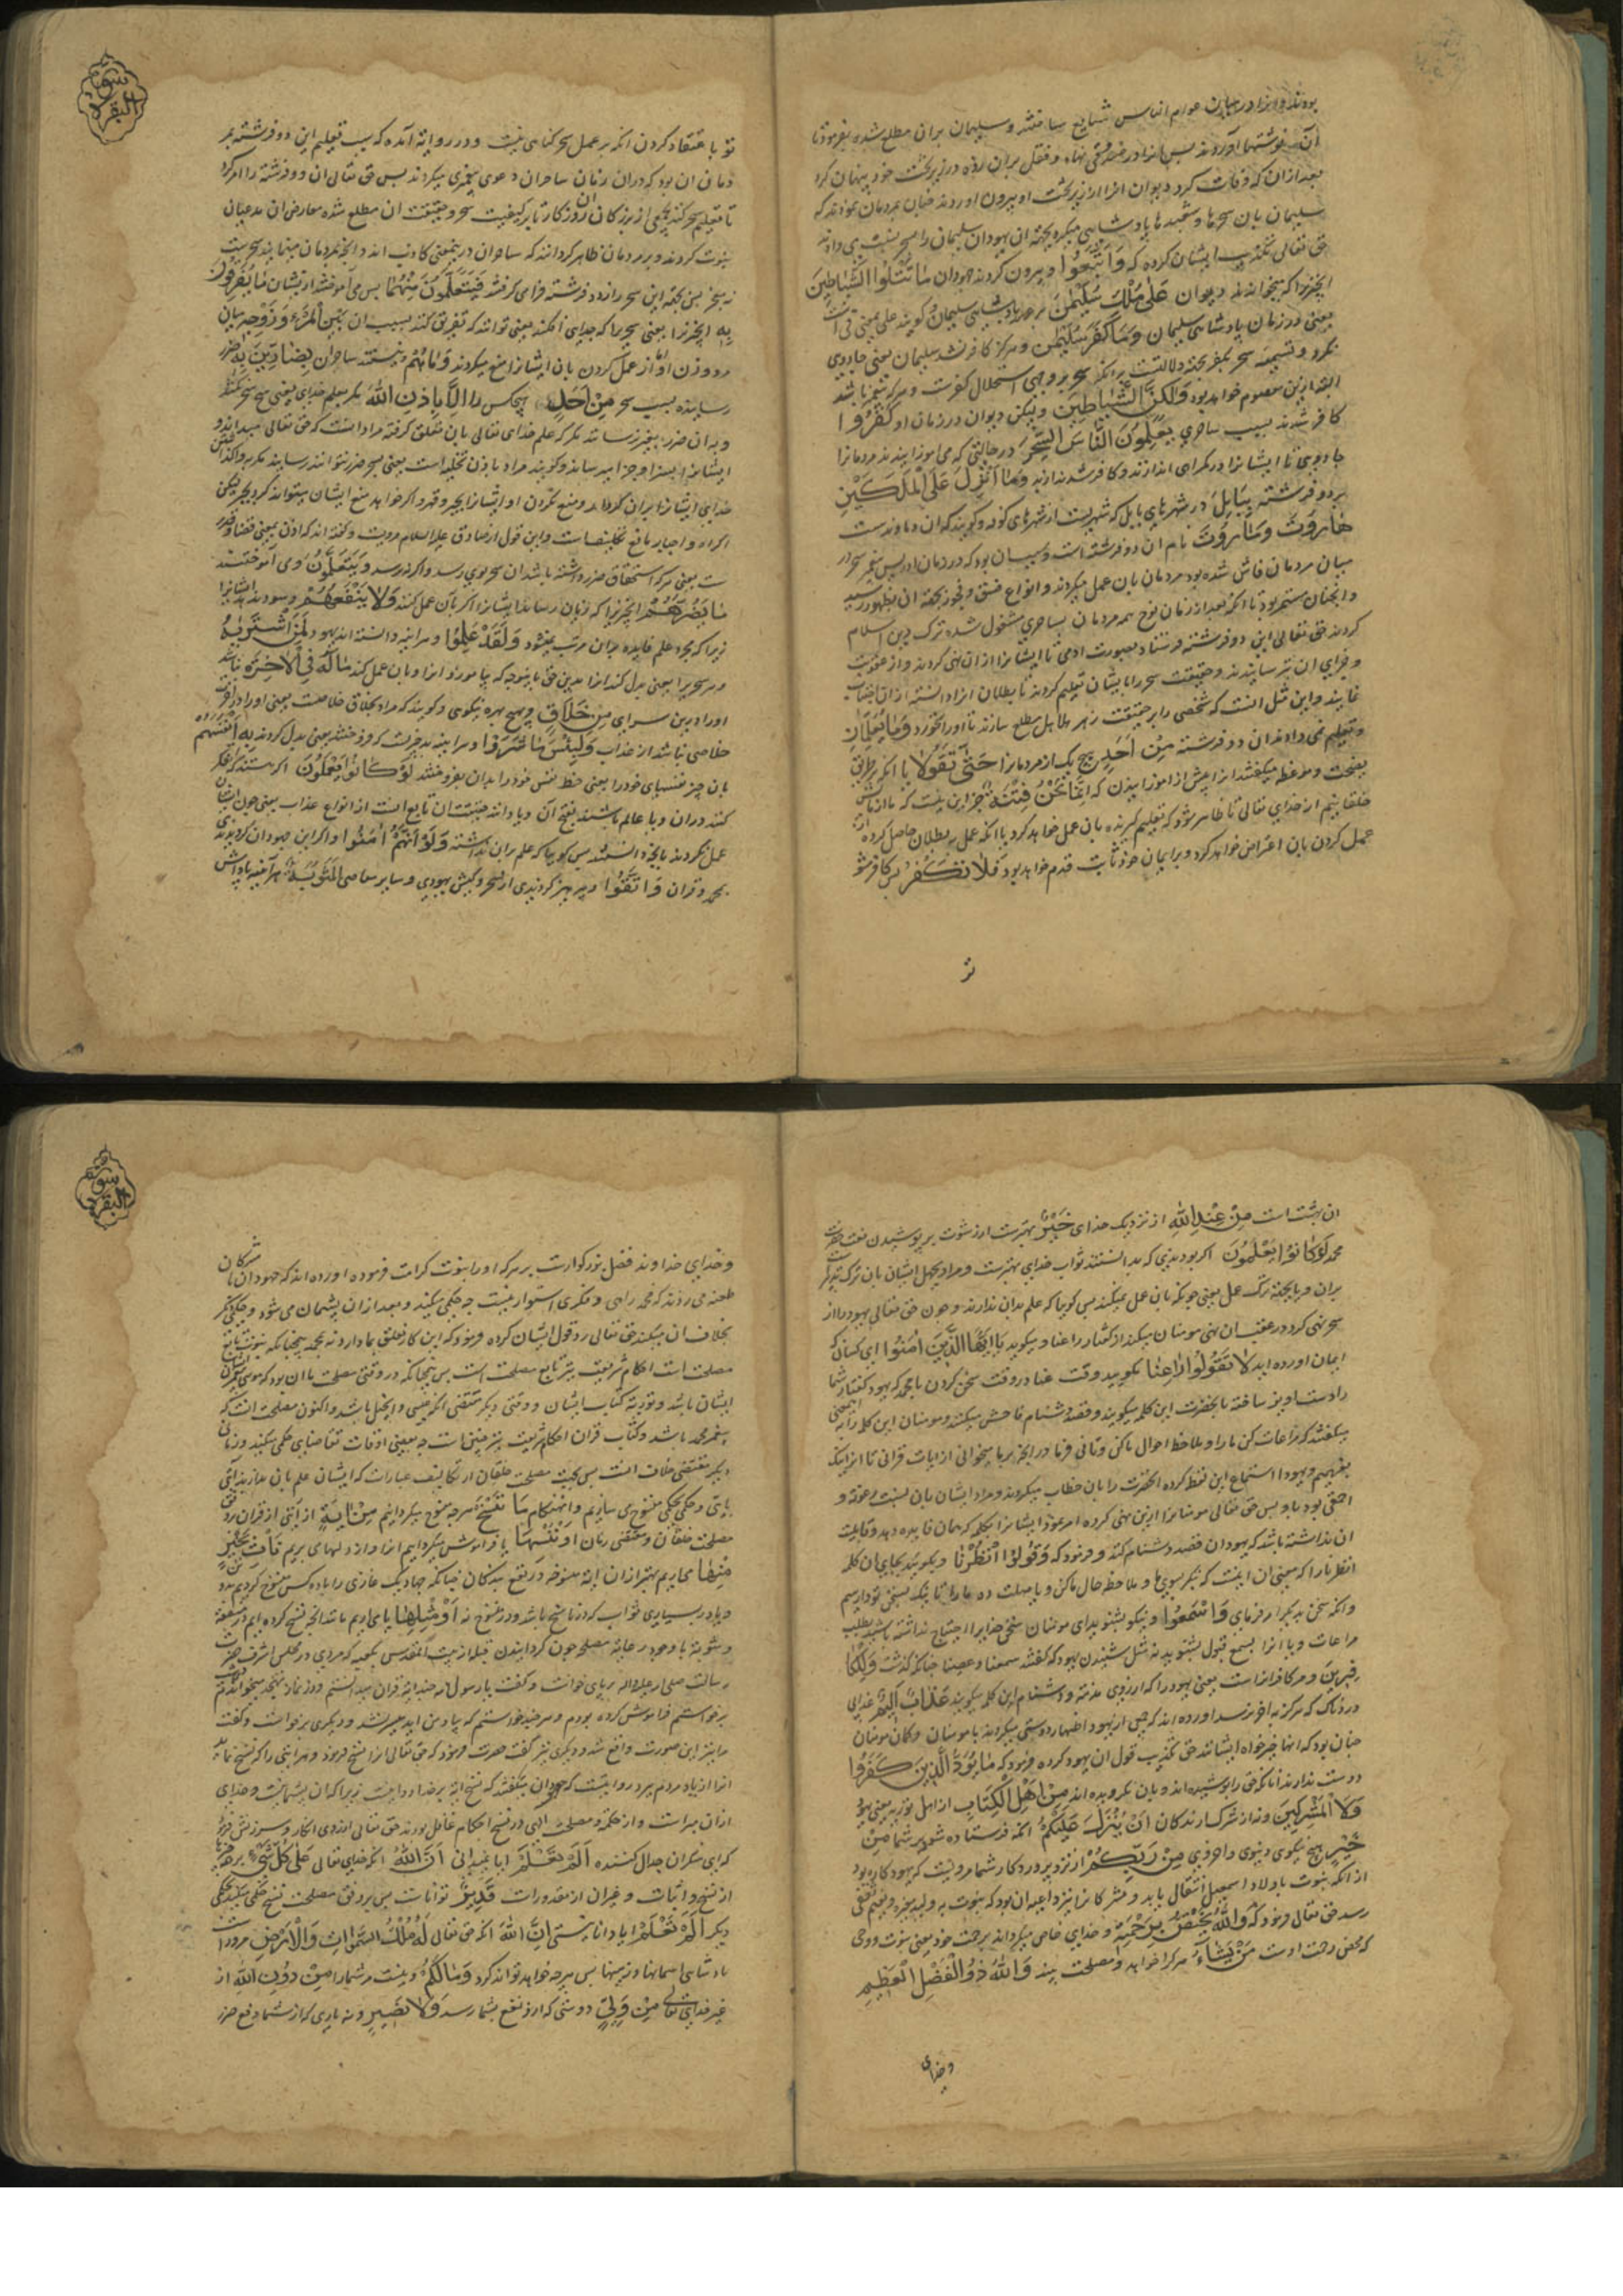 بودند و انرا در میان عوام الناس شایع ساختند و سلیمان بران مطلع شده بفرمود تا
آن نوشتها آوردند پس انرا در صندوقی نهاد و قفل بران زده در زیر تخت خود پنهان کرد
بعد ازان که وفات کرد دیوان انرا از زیر تخت او بیرون اوردند چنان بمردمان نمودند که
سلیمان بان سحرها و شعبدها پادشاهی میکرد بجهة ان یهودان سلیمان را بسحر نسبت می دادند
حق تعالی تکذیب ایشان کرده که وَاتَّبَعُوا و پیروی کردند جهودان مَا تَتْلُوا الشَّیَاطِینُ
انچیزرا که میخواندند دیوان عَلَی مُلْکِ سُلَیْمٰنَ بر عهد پادشاهی سلیمان و کویند علی بمعنی فی است
یعنی در زمان پادشاهی سلیمان وَمَا کَفَرَ سُلَیْمٰنُ و هرکز کافر نشد سلیمان یعنی جادویی
نکرد و تسمیهٔ سحر بکفر بجهة دلالتست برانکه سحر بر وجه استحلال کفرست و هرکه پیغمبر باشد
البته ازین معصوم خواهد بود وَلٰکِنَّ الشَّیَاطِینَ و لیکن دیوان در زمان او کَفَرُوا
کافر شدند بسبب ساحری یُعَلِّمُونَ النَّاسَ السِّحْرَ در حالتی که می اموزانیدند مردمانرا
جادویی تا ایشانرا در کمراهی اندازند و کافر شدند ازند وَمَا اُنْزِلَ عَلَی الْمَلَکَیْنِ
بر دو فرشته بِبَابِلَ در شهرهای بابل که شهریست از شهرهای کوفه و کویند که ان دماوندست
هٰارُوتَ وَمَارُوتَ نام ان دو فرشته است و سبب ان بود که در زمان ادریس پیغمبر سحر در
میان مردمان فاش شده بود مردمان بان عمل میکردند و انواع فسق و فجور بجهة ان بظهور رسید
و انچنان مستمر بود تا انکه بعد از زمان نوح همه مردمان بساحری مشغول شده ترک دین اسلام
کردند حق تعالی این دو فرشته فرستاد بصورت ادمی تا ایشانرا ازان نهی کردند و از عقوبت
و جزای ان بترسانیدند و حقیقت سحر را بایشان تعلیم کردند تا بطلان انرا دانسته ازان اجتناب
نمایند و این مثل انست که شخصی را بر حقیقت زهر هلاهل مطلع سازند تا اورا نخورد وَمَا یُعَلِّمَانِ
و تعلیم نمی دادندان دو فرشته مِنْ اَحَدٍ هیچ یک از مردمانرا حَتّٰی یَقُولَا تا انکه بر طریق
نصیحت و موعظه میکفتند انرا پیش از اموزانیدن که اِنَّمَا نَحْنُ فِتْنَةٌ جز این نیست که ما ازمایش
خلقانیم از خدای تعالی تا ظاهر شود که تعلیم کیرنده بان عمل خواهد کرد یا انکه عمل به بطلان حاصل کرده از
عمل کردن بان اعتراض خواهد کرد و بر ایمان خود ثابت قدم خواهد بود فَلَا تَکْفُرْ پس کافر مشو
تو
سورة البقره
تو باعتقاد کردن انکه بر عمل سحر کناهی نیست و در روایة آمده که سبب تعلیم این دو فرشته مر
دمان ان بود که دران زمان ساحران دعوی پیغمبری میکردند پس حق تعالی ان دو فرشته را امر کرد
تا تعلیم سحر کنند بجمعی از بزرکان ان روزکار تا بر کیفیت سحر و حقیقت ان مطلع شده معارض ان مدعیان
نبوت کردند و بر مردمان ظاهر کردانند که ساحران درینمعنی کاذب اند و انچه بمردمان مینمایند سحریست
نه معجز پس بجهة این سحر را ازدو فرشته فرا می کرفتند فَیَتَعَلَّمُونَ مِنْهُمَا پس می آموختند ازیشان مَا یُفَرِّقُونَ
بِهِ انچیزرا یعنی سحریرا که جدایی افکنند یعنی توانند که تفریق کنند بسبب ان بَیْنَ الْمَرْءِ وَزَوْجِهِ میان
مرد و زن او و از عمل کردن بان ایشانرا منع میکردند وَمَا هُمْ و نیستند ساحران بِضَارِّینَ بِهِ ضرر
رسانیده بسبب سحر مِنْ اَحَدٍ هیچکس را اِلَّا بِاِذْنِ اللّٰهِ مکر بعلم خدای یعنی هیچ سحر نکنند
و بدان ضرر بغیر نرسانند مکر که علم خدای تعالی بان تعلق کرفته مراد انست که حق تعالی میداند و
ایشانرا بسزا و جزا میرساند و کویند مراد باذن تخلیه است یعنی بسحر ضرر نتوانند رسانید مکر بواکذاشتن
خدای ایشانرا بران کردار و منع نکردن او ایشانرا بجبر و قهر و اکر خواهد منع ایشان میتواند کرد بجبر لیکن
اکراه و اجبار مانع تکلیفست و این قول از صادق علیه السلام مرویست و کفته اند که اذن بمعنی قضا و قدر
ست یعنی هرکه استحقاق ضرر داشته باشد ان سحر بوی رسد و اکر نه نرسد وَیَتَعَلَّمُونَ و می آموختند
مَا یَضُرُّهُمْ انچیزرا که زیان رساند ایشانرا اکر بان عمل کنند وَلَا یَنْفَعُهُمْ و سود ندهد ایشانرا
زیرا که مجرد علم فایده بران مرتب نمیشود وَلَقَدْ عَلِمُوا و هراینه دانسته اند یهود لَمَنِ اشْتَرٰیهُ
هر سحریرا یعنی بدل کند انرا بدین حق باینوجه که بیاموزد انرا و بان عمل کند مَا لَهُ فِی الْاٰخِرَةِ نباشد
اورا دران سرای مِنْ خَلَاقٍ هیچ بهره نیکویی و کویند که مراد بخلاق خلاصست یعنی اورا در اخرت
خلاصی نباشد از عذاب وَلَبِئْسَ مَا شَرَوْا و هراینه بد چیزیست که فروختند یعنی بدل کردند بِهِ اَنْفُسَهُمْ
بان چیز نفسهای خودرا یعنی حظ نفس خودرا بدان بفروختند لَوْ کَانُوا یَعْلَمُونَ اکر هستند که تفکر
کنند دران و یا عالم باشند بقبح آن و یا دانند حقیقت ان تابع انست از انواع عذاب یعنی چون ایشان
عمل نکردند بانچه دانستند پس کوییا که علم بران نداشته وَلَوْ اَنَّهُمْ اٰمَنُوا و اکر این جهودان کرویدندی
بمحمد و قران وَاتَّقَوْا و پرهیز کردندی از سحر و کیش یهودی و سایر معاصی لَمَثُوبَةٌ هراینه پاداش
ان بهشت است مِنْ عِنْدِ اللّٰهِ از نزدیک خدای خَیْرٌ بهترست از رشوت بر پوشیدن نعت حضرت
محمد لَوْ کَانُوا یَعْلَمُونَ اکر بودندی که بدانستند ثواب خدای بهترست و مراد بجهل ایشان بان ترک تدبر
بران و یا بجهة ترک عمل یعنی چونکه بان عمل نمیکنند پس کوییا که علم بدان ندارند و چون حق تعالی یهود را از
سحر نهی کرد در عقب ان نهی مومنان میکند از کفتار راعنا و میکوید یَا اَیُّهَا الَّذِینَ اٰمَنُوا ای کسانی که
ایمان اورده اید لَا تَقُولُوا رَاعِنَا مکویید راعنا در وقت سخن کردن با محمد که یهود کفتار شما
را دست اویز ساخته با نحضرت این کلمه میکویند و قصد دشنام فاحش میکنند و مومنان این کلمه را به اینمعنی
میکفتند که مراعات کن مارا و ملاحظ احوال ما کن و تانی فرما در انچه بر ما میخوانی از ایات قرانی تا انرا نیک
بفهمیم و یهود استماع این لفظ کرده انحضرت را بان خطاب میکردند و مراد ایشان بان نسبت رعونة و
احمقی بود باو پس حق تعالی مومنانرا ازین نهی کرده امر فرمود ایشانرا بکلمه که همان فایده دهد و قابلیت
ان نداشته باشد که یهودان قصد دشنام کنند و فرمود که وَقُولُوا انْظُرْنَا و بکویید بجای ان کلمه
انظرنا را که معنی ان اینست که بنکر بسوی ما و ملاحظه حال ما کن و یا مهلت ده مارا تا نیک بسخن تو وارسیم
و انکه سخن بدیکر ار فرمای وَاسْمَعُوا و نیکو بشنوید ای مومنان سخن خدایرا تا احتیاج نداشته باشید بطلب
مراعات و یا انرا بسمع قبول بشنوید نه مثل شنیدن یهود که کفتند سمعنا و عصینا چنانکه کذشت وَلِلْکَا
فِرِینَ و مر کافرانراست یعنی یهود را که ارزوی مذمة و دشنام این کلمه میکویند عَذَابٌ اَلِیمٌ عذابی
دردناک که هرکز بآخر نرسد اورده اند که جمعی از یهود اظهار دوستی میکردند با مومنان و کمان مومنان
چنان بود که انها خیرخواه ایشانند حق تکذیب قول ان یهود کرده فرمود که مَا یَوَدُّ الَّذِینَ کَفَرُوا
دوست ندارند انانکه حق را پوشیده اند و بان نکرویده اند مِنْ اَهْلِ الْکِتَابِ از اهل توریة یعنی یهود
وَلَا الْمُشْرِکِینَ و نه از شرک ارندکان اَنْ یُنَزَّلَ عَلَیْکُمْ انکه فرستاده شود بر شما مِنْ
خَیْرٍ هیچ نیکویی دنیوی و اخروی مِنْ رَبِّکُمْ از نزد پروردکار شما مرویست که یهود کاره بود
از انکه نبوت باولاد اسمعیل انتقال یابد و مشرکانرا نیز داعیه ان بود که نبوت به ولید مغیره و نعیم ثقفی
رسد حق تعالی فرمود که وَاللّٰهُ یَخْتَصُّ بِرَحْمَتِهِ و خدای خاص میکرداند برحمت خود یعنی نبوت و وحی
که محض رحمت اوست مَنْ یَشَاءُ هرکرا خواهد و مصلحت بیند وَاللّٰهُ ذُو الْفَضْلِ الْعَظِیمِ
و خدای
سورة البقره
و خدای خداوند فضل بزرکوارست بر هرکه اورا بنوت کرامت فرموده اورده اند که جهودان با مشرکان
طعنه می زدند که محمد راهی و فکری استوار نیست چه حکمی میکند و بعد ازان پشیمان می شود و حکمی دیکر
بخلاف ان میکند حق تعالی رد قول ایشان کرده فرمود که این کار تعلق بما دارد نه بمحمد همچنانکه نبوت تابع
مصلحت است احکام شریعت نیز تابع مصلحت است پس چنانکه در وقتی مصلحت با ان بود که موسی پیغمبر
ایشان باشد و توریة کتاب ایشان و وقتی دیکر مقتضی انکه عیسی و انجیل باشد و اکنون مصلحت انست که
پیغمبر محمد باشد و کتاب قران احکام شریعت نیز چنین است چه بعضی اوقات تقاضای حکمی میکند و زمان
دیکر مقتضی خلاف انست پس بجهت مصلحت خلقان از تکالیف عبارات که ایشان علم بان ندارند ایتی
بایتی و حکمی بحکمی منسوخ می سازیم و انهنکام مَا نَنْسَخْ هرچه منسوخ میکردانیم مِنْ اٰیَةٍ از آیتی از قران بر وفق
مصلحت خلقان و مقتضی زمان اَوْ نُنْسِهَا یا فراموش میکردانیم انرا و از دلهای بریم نَاْتِ بِخَیْرٍ
مِنْهَا می اریم بهتر ازان ایة منسوخه در نفع بندکان چنانکه جهاد یک غازی را با ده کس منسوخ کردیم بدو
و یا در بسیاری ثواب که در ناسخ باشد و در منسوخ نه اَوْ مِثْلِهَا یا می اریم مانند انچه نسخ کرده ایم در منفعة
و مثوبة با وجود رعایة مصلحة چون کردانیدن قبله از بیت المقدس بکعبه که مردی در مجلس اشرف حضرت
رسالت صلی الله علیه واله برپای خواست و کفت یا رسول الله من چندایة قران میدانستم و در نماز تهجد میخواندم
برخواستم فراموش کرده بودم و هرچند خواستم که بیاد من اید میسر نشد و دیکری برخواست و کفت
مرا نیز این صورت واقع شد و دیکری نیز کفت حضرت فرمود که حق تعالی انرا نسخ فرمود و هر ایتی را که نسخ نماید
انرا از یاد مردم ببرد روایتست که جهودان میکفتند که نسخ ایة بر خدا روا نیست زیرا که ان پشیمانیست و خدای
ازان مبراست و از حکمة و مصلحت الهی در نسخ احکام غافل بودند حق تعالی ازروی انکار و سرزنش فرمود
که ای منکران جدال کننده اَلَمْ تَعْلَمْ ایا نمیدانی اَنَّ اللّٰهَ انکه خدای تعالی عَلٰی کُلِّ شَیْءٍ بر همه چیز
از نسخ و اثبات و غیران از مقدورات قَدِیرٌ تواناست پس بر وفق مصلحت نسخ حکمی میکند بحکمی
دیکر اَلَمْ تَعْلَمْ ایا دانا نیستی اَنَّ اللّٰهَ انکه حق تعالی لَهُ مُلْکُ السَّمٰوَاتِ وَالْاَرْضِ مروراست
پادشاهی اسمانها و زمینها پس هرچه خواهد تواند کرد وَمَا لَکُمْ و نیست مر شمارا مِنْ دُونِ اللّٰهِ از
غیر خدای تعالی مِنْ وَلِیٍّ دوستی که ازو نفع بشما رسد وَلَا نَصِیرٍ و نه یاری که از شما دفع ضرر